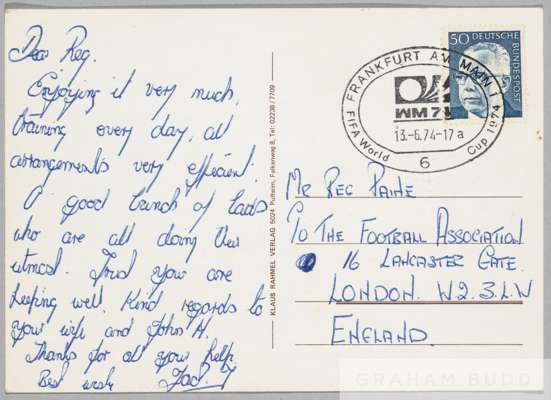 Dear Reg.
Enjoying it very much,
training every day, all
arrangements very efficient.
A good bunch of lads
who are all doing their
utmost. Trust you are
keeping well. Kind regards to
your wife and John H.
Thanks for all your help.
Best wish
KLAUS RAHMEL VERLAG 5024 Pulheim, Falkenweg 8, Tel: 02238/7709
FRANKFURT AM MAIN 1
WM74
13.-6.74-17a
FIFA World Cup 1974
6
50 DEUTSCHE
BUNDESPOST
Mr Reg Paine
C/o The Football Association
16 Lancaster Gate.
London. W2.3.L.W
England.
GRAHAM BUDD